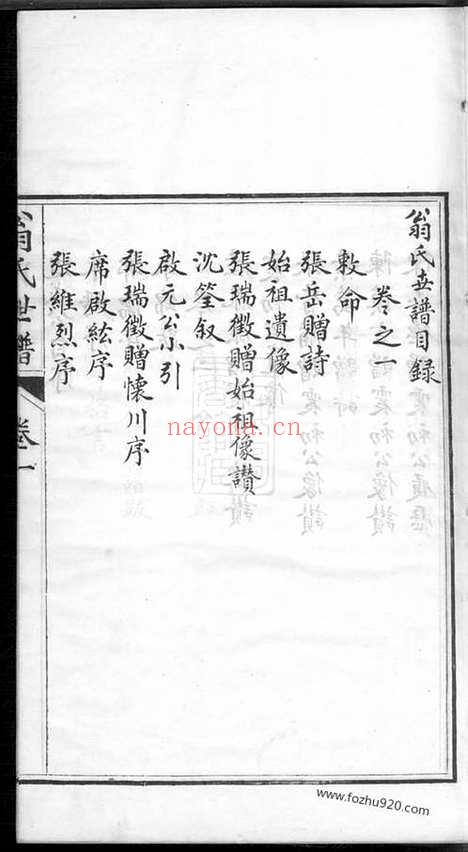 翁氏世譜目録
卷之一
敕命
張岳贈詩
始祖遺像
張瑞徵贈始祖像讃
沈筌叙
啟元公小引
張瑞徵贈懷川序
席啟紘序
張維烈序
翁氏世譜
卷一
nayona.cn
www.fozhu920.com